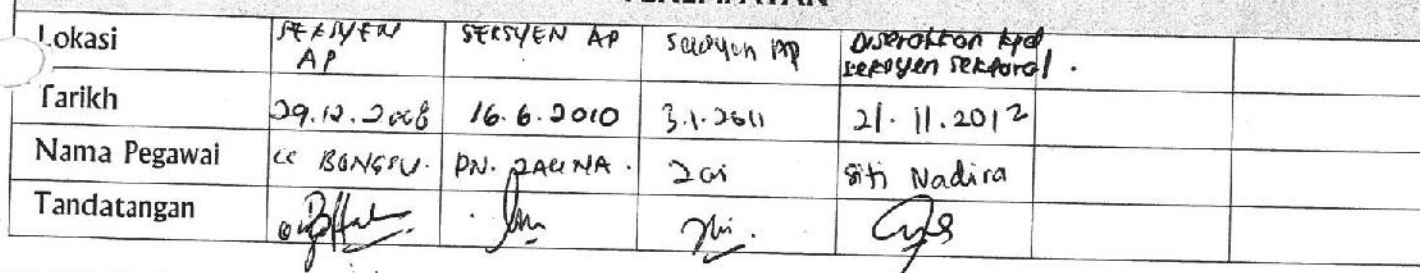 Lokasi SEKSYEN AP SEKSYEN AP Seksyen AP Diserahkan kpd seksyen sektoral.
Tarikh 29.12.2008 16.6.2010 3.1.2011 21.11.2012
Nama Pegawai BONGSU. PN. ZALINA. Zai Siti Nadira
Tandatangan